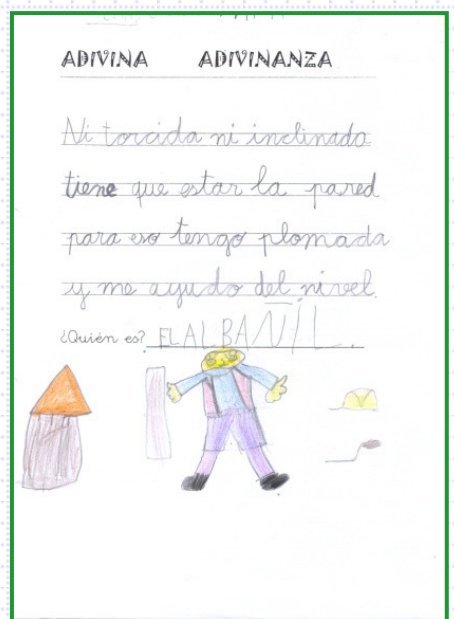 ADIVINA ADIVINANZA
Ni torcida ni inclinada
tiene que estar la pared
para eso tengo plomada
y me ayudo del nivel.
¿Quién es? EL ALBAÑIL.